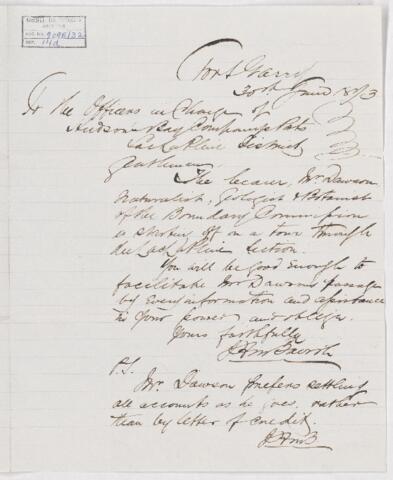 ACC. NO. 2096/32
REF. 11d
Fort Garry
30th June 1873
To the Officers in Charge of
Hudson's Bay Company's Posts
Lac La Pluie District
Gentlemen
The bearer, Mr. Dawson
Naturalist, Geologist & Botanist
of the Boundary Commission
is starting off on a tour through
the Lac La Pluie section.
You will be good enough to
facilitate Mr Dawsons passage
by every information and assistance
in your power and oblige.
Yours faithfully
P.S.
Mr. Dawson prefers settling
all accounts as he goes, rather
than by letter of credit.